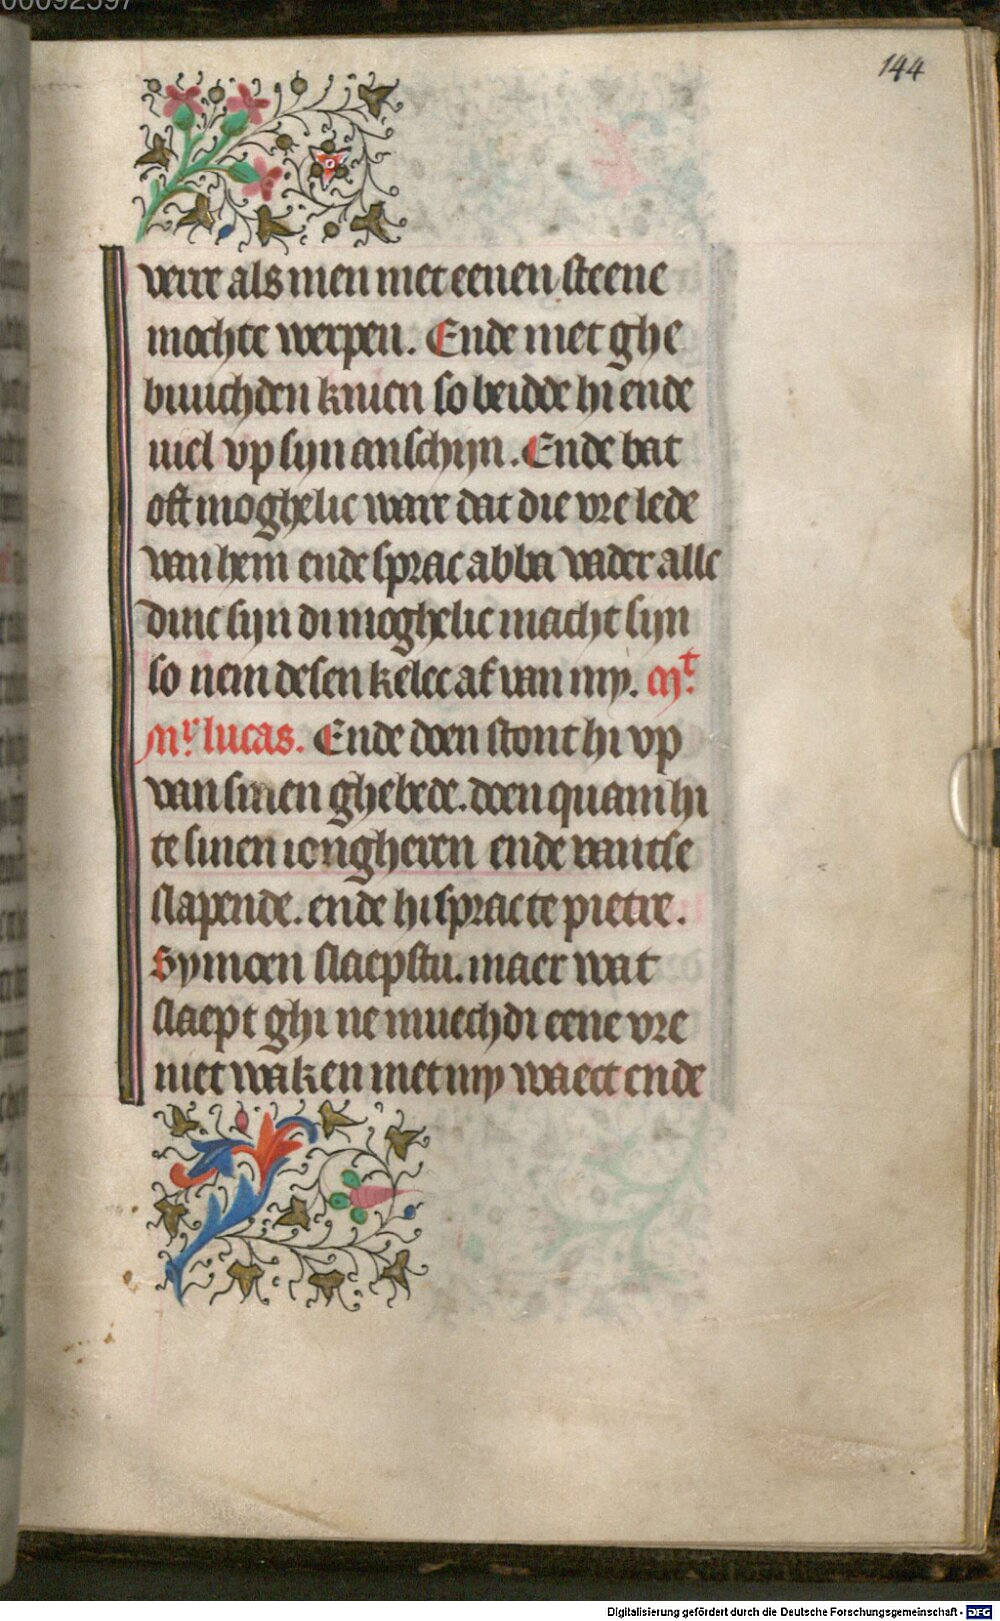 00092597
144
verre als men met eenen steene
mochte werpen. Ende met ghe
buuchden knien so beidde hi ende
viel vp syn anschyn. Ende bat
oft moghelic ware dat die vre lede
van hem ende sprac abba vader alle
dinc syn di moghelic macht syn
so nem desen kelec af van my. Mt.
Mr. lucas. Ende doen stont hi vp
van sinen ghebede. doen quam hi
te sinen iongheren ende vantse
slapende. ende hi sprac te pietre.
Symoen slaepstu. maer wat
slaept ghi ne muechdi eene vre
niet waken met my waect ende
Digitalisierung gefördert durch die Deutsche Forschungsgemeinschaft - DFG